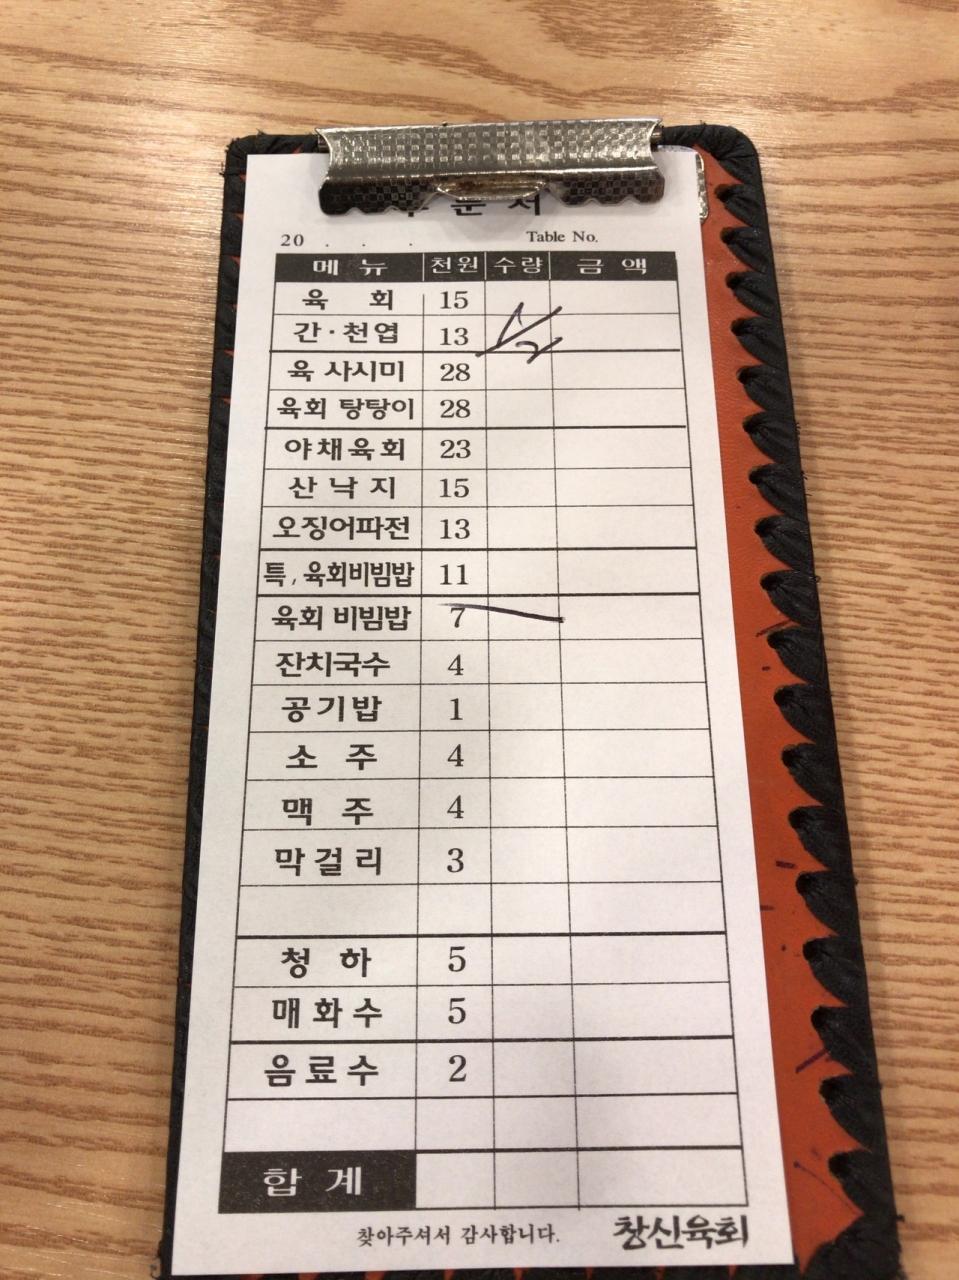 주문서
20 . . . Table No.
메뉴 천원 수량 금액
육 회 15
간·천엽 13
육 사시미 28
육회 탕탕이 28
야채육회 23
산낙지 15
오징어파전 13
특, 육회비빔밥 11
육회 비빔밥 7
잔치국수 4
공기밥 1
소 주 4
맥 주 4
막걸리 3
청 하 5
매화수 5
음료수 2
합 계
찾아주셔서 감사합니다. 창신육회